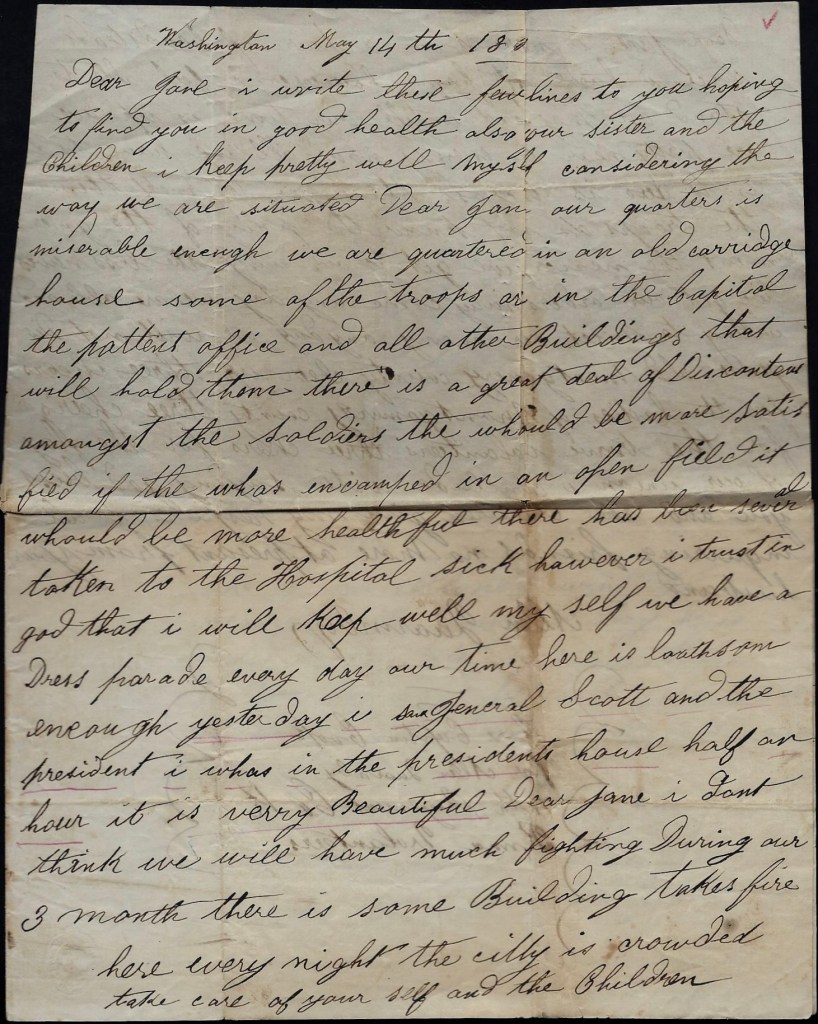 Washington May 14th 18
Dear Jane i write these few lines to you hoping
to find you in good health also your sister and the
Children i Keep pretty well my self considering the
way we are situated Dear Jane our quarters is
miserable enough we are quartered in an old carridge
house some of the troops ar in the Capital
the pattent office and all other Buildings that
will hold them there is a great deal of Discontent
amongst the soldiers the whould be more satis
fied if the whas encamped in an open field it
whould be more healthful there has been several
taken to the Hospital sick however i trust in
god that i will keep well my self we have a
Dress parade every day our time here is loathsom
eneough yesterday i saw General Scott and the
president i whas in the presidents house half an
hour it is verry Beautiful Dear Jane i Dont
think we will have much fighting During our
3 month there is some Building takes fire
here every night the citty is crowded
take care of your self and the Children